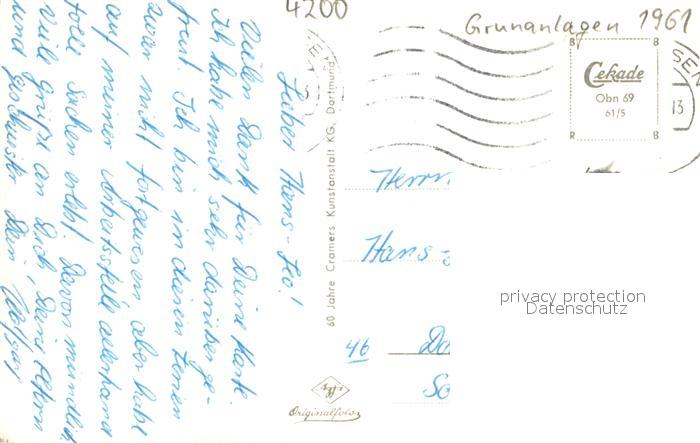 4200
Grünanlagen 1961
Cekade
Obn 69
61/5
SEN
13
Lieber Hans-Leo!
Vielen Dank für Deine Karte.
Ich habe mich sehr darüber ge-
freut. Ich bin in diesen Ferien
zwar nicht fortgewesen aber habe
auf meiner Arbeitsstelle allerhand
tolle Sachen erlebt. Davon mündlich
viele Grüße an Dich, Deine Eltern
und Geschwister Dein
60 Jahre Cramers Kunstanstalt KG, Dortmund
Herrn
Hans-
46 Do
So
privacy protection
Datenschutz
Agfa
Originalfoto